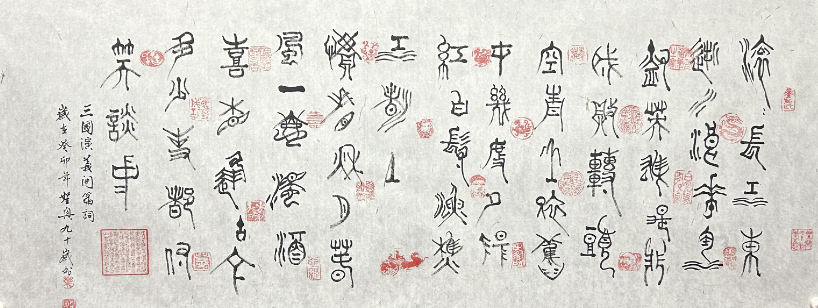 滚滚長江東
逝水浪花淘
盡英雄是非
成敗轉頭
空青山依舊
在幾度夕陽
紅白髮漁樵
江渚上
慣看秋月春
風一壺濁酒
喜相逢古今
多少事都付
笑談中
三國演義開篇詞
歲在癸卯年 九十歲書